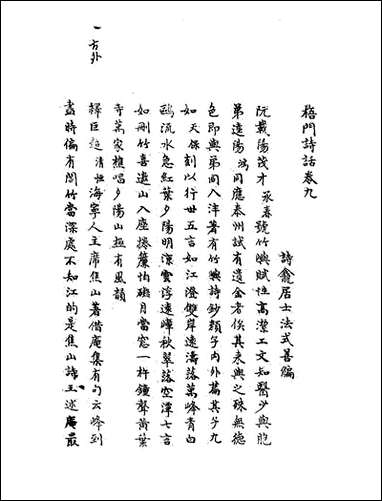 梧門詩話卷九
詩龕居士法式善編
阮載陽茂才承春號竹嶼賦性高潔工文知醫少與胞
弟達陽鴻同應泰州試有遺金者俟其来與之殊無德
色即與弟同入泮著有竹嶼詩鈔顏子內外篇其子九
如天保刻以行世五言如江澄雙岸遠濤落萬峰青白
鷗流水急紅葉夕陽明深雲浮遠嶂秋翠落空潭七言
如刪竹喜邀山入座捲簾怕礙月當窓一杵鐘聲黃葉
寺萬家樵唱夕陽山極有風韻
釋巨超清恒海寧人主席焦山著借庵集有句云峰到
盡時偏有閣竹當深處不知江的是焦山詩王述庵最
一 方外